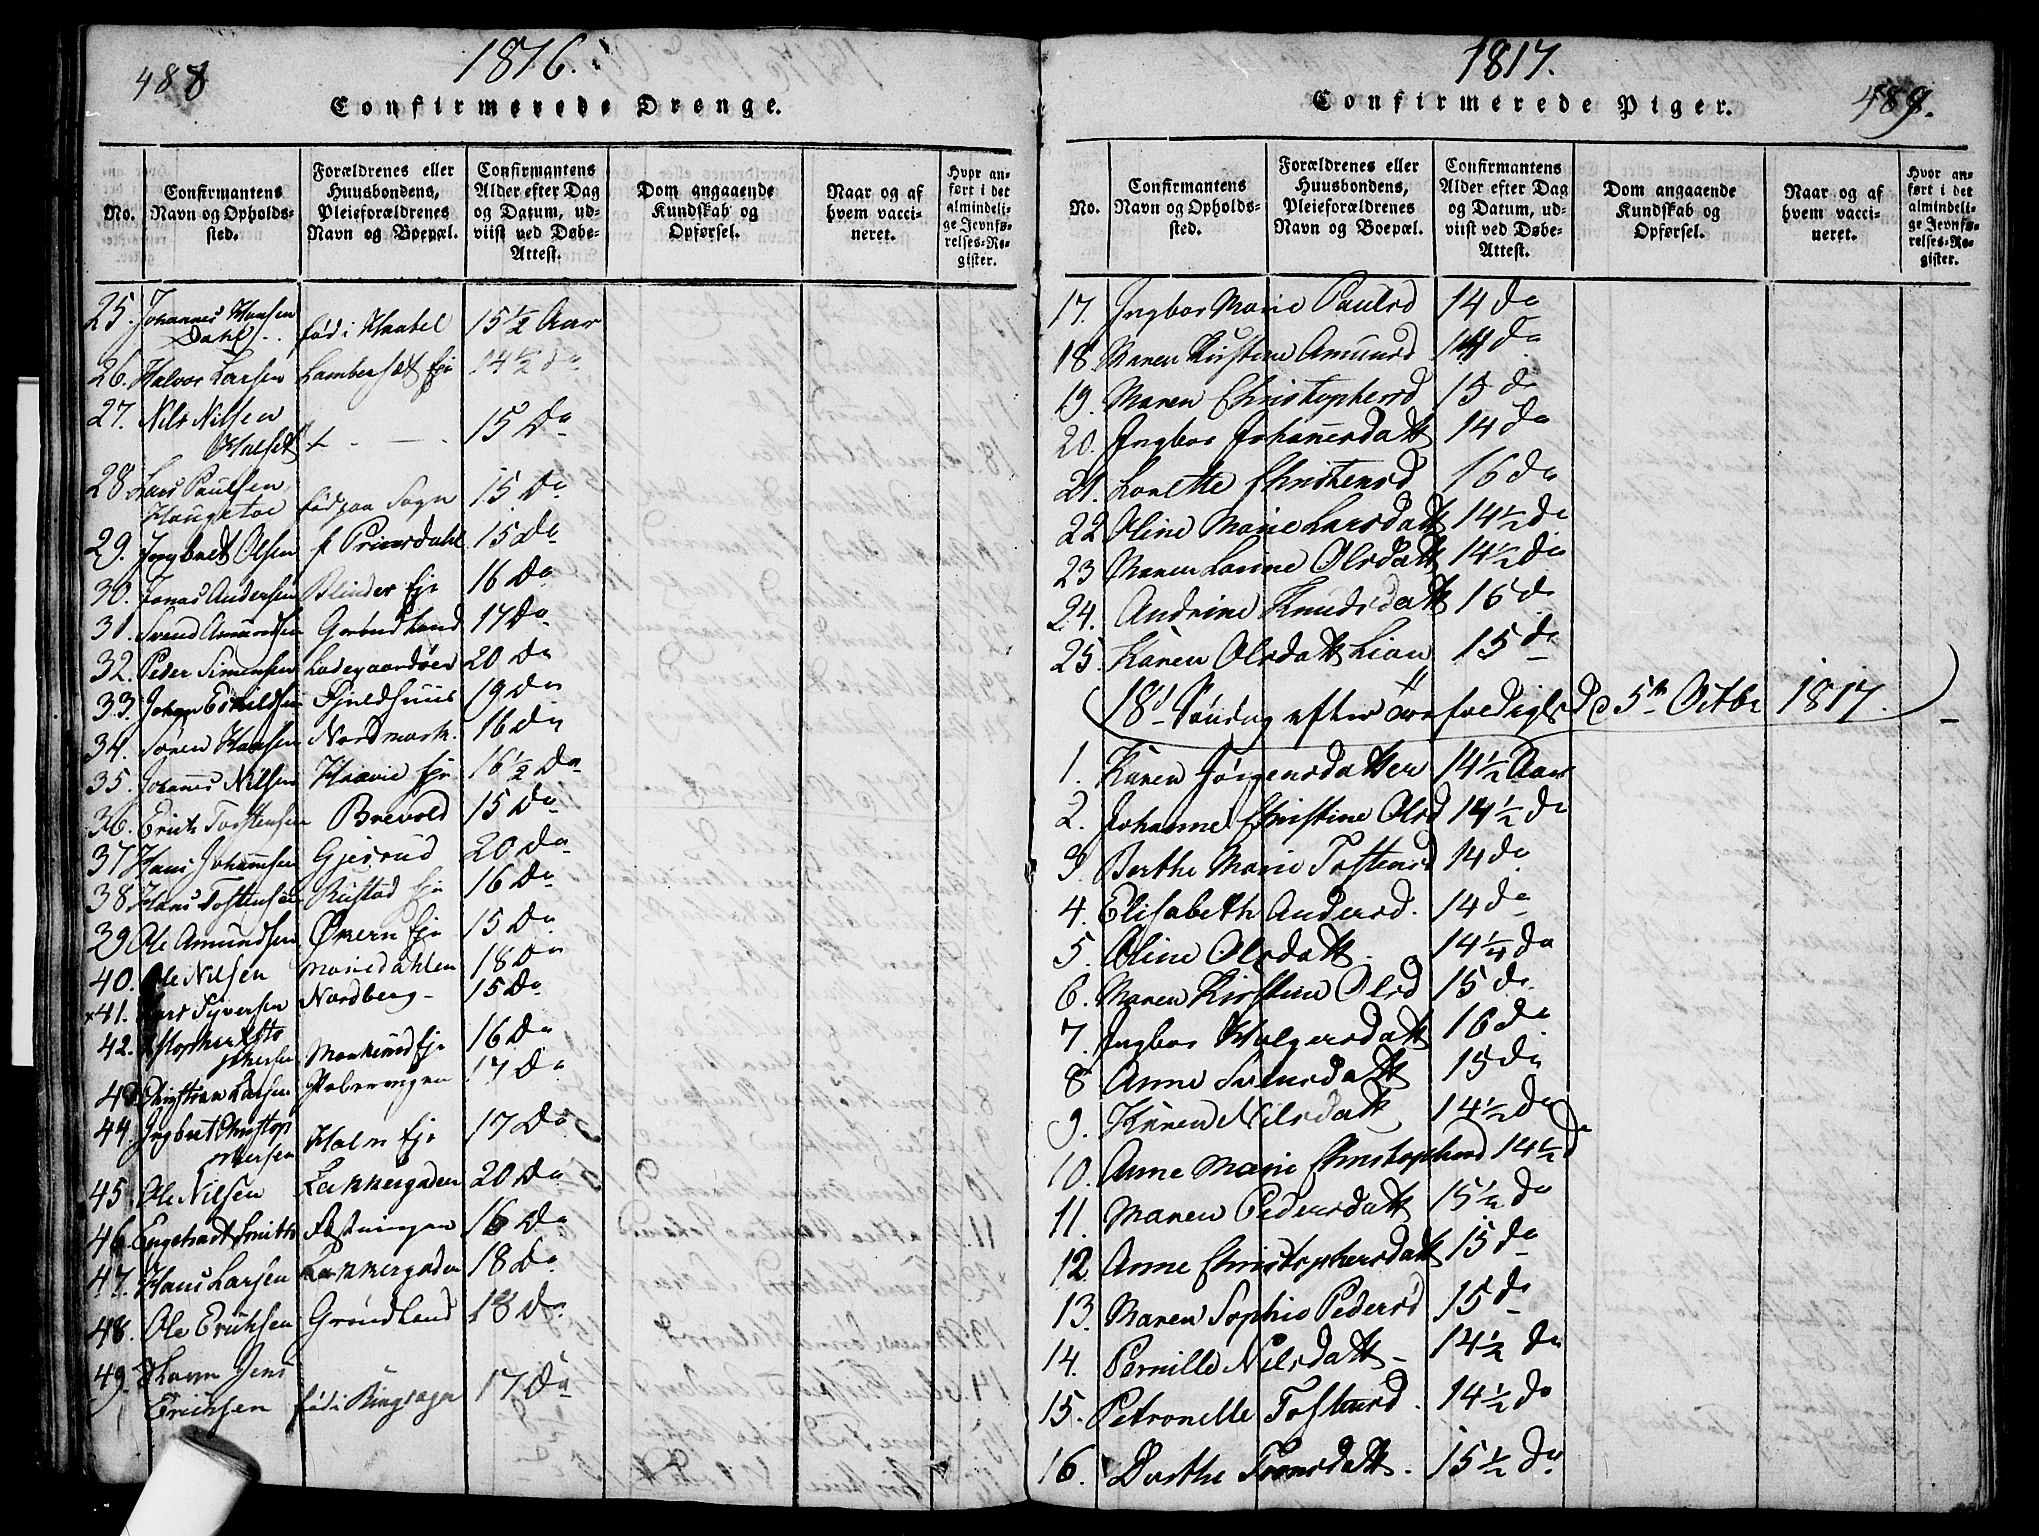 488
1816.
Confirmerede Drenge.
No.
Confirmantens
Navn og Opholds-
sted.
Forældrenes eller
Huusbondens,
Pleieforældrenes
Navn og Boepæl.
Confirmantens
Alder efter Dag
og Datum, ud-
viist ved Døbe-
Attest.
Dom angaaende
Kundskab og
Opførsel.
Naar og af
hvem vacci-
neret.
Hvor an-
ført i det
almindeli-
ge Jevnfø-
relses-Re-
gister.
25. Johannes Hansen
Dahl . . fød i Haabel 15 1/2 Aar
26. Halvor Larsen Lambersæt Eje 14 1/2 do
27. Nils Nilsen
Hulset 15 Do
28 Lars Paulsen
Haugstoe fød paa Sogn 15 Do
29. Ingbret Olsen f Prinsdahl 15 Do
30. Jonas Andersen Blinder Eje 16 Do
31. Svend Amundsen Grøndland 17 Do
32. Peder Simensen Ladegaardsøen 20 Do
33. Johan Eskildsen Pjeldhuus 19 Do
34. Søren Hansen Nordmark. 16 Do
35. Johannes Nilsen Haavie Eje 16 1/2 Do
36. Erich Tostensen Brevold 15 Do
37 Hans Johannsen Gjesrud 20 Do
38 Hans Tostensen Rustad Eje 16 Do
39 Ole Amundsen Økern Eje 15 Do
40. Ole Nilsen Mariedahlen 18 Do
x 41. Lars Syversen Nordberg 15 Do
42. Xstopher Xsto
phersen Markerud Eje 16 Do
43 Christian Larsen 17 Do
44. Ingbret Christop
phersen Holm Eje 17 Do
45. Ole Nilsen Lakkergaden 20 Do
46. Engebredt Smith Fæstningen 16 Do
47. Hans Larsen Lakkergaden 18 Do
48. Ole Erichsen Grøndland 18 Do
49. Jens
Erichsen fød i Ringsager 17 Do
1817.
Confirmerede Piger.
489.
No.
Confirmantens
Navn og Opholds-
sted.
Forældrenes eller
Huusbondens,
Pleieforældrenes
Navn og Boepæl.
Confirmantens
Alder efter Dag
og Datum, ud-
viist ved Døbe-
Attest.
Dom angaaende
Kundskab og
Opførsel.
Naar og af
hvem vacci-
neret.
Hvor an-
ført i det
almindeli-
ge Jevnfø-
relses-Re-
gister.
17. Ingbor Marie Paulsd 14 do
18. Maren Kirstine Amunsd 14 do
19. Maren Christophersd 15 do
20. Ingbor Johannesdatt 14 do
21. Lovette Christensd 16 do
22. Oline Marie Larsdatt 14 1/2 do
23 Maren Lovine Olsdatt 14 1/2 do
24. Andrine Knudsdatt 16 do
25. Karen Olsdatt Lian 15 do
18d Søndag efter Trefoedighd d 5te Octbr 1817.
1. Karen Jørgensdatter 14 1/2 Aar
2. Johanne Christine Olsd 14 1/2 do
3. Berthe Marie Tostensd 14 do
4. Elisabeth Andersd. 14 do
5. Oline Olsdatt. 14 1/4 do
6. Maren Kirstine Olsd 15 do
7. Ingbor Holgersdatt 16 do
8 Anne Svensdatt 15 do
9. Karen Nilsdatt 14 1/2 do
10. Anne Marie Christophersd 14 1/2 d
11. Maren Pedersdatt 15 1/2 do
12 Anne Christophersdatt 15 do
13. Maren Sophie Pedersd 15 do
14. Pernille Nilsdatt 14 1/2 do
15. Petronelle Tostensd. 14 1/2 do
16. Dorthe Tronsdatt. 15 1/2 do